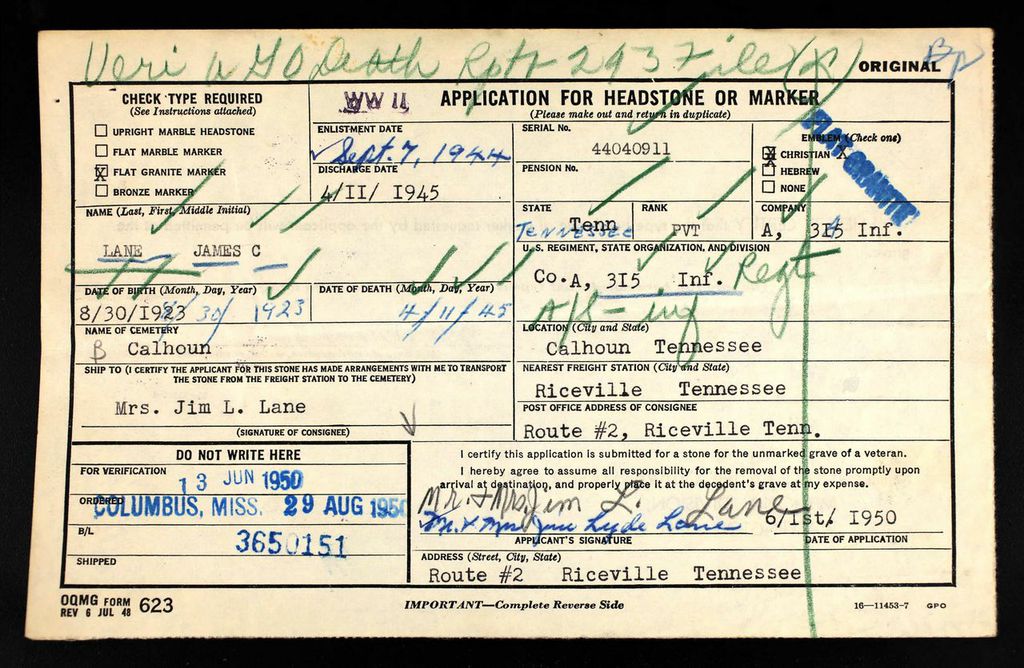 Veri AGO Death Rptr 293 File (X)
BR
ORIGINAL
CHECK TYPE REQUIRED
(See Instructions attached)
UPRIGHT MARBLE HEADSTONE
FLAT MARBLE MARKER
X FLAT GRANITE MARKER
BRONZE MARKER
WW II
APPLICATION FOR HEADSTONE OR MARKER
(Please make out and return in duplicate)
ENLISTMENT DATE
Sept. 7, 1944
DISCHARGE DATE
4/II/ I945
SERIAL No.
44040911
PENSION No.
EMBLEM (Check one)
X CHRISTIAN X
HEBREW
NONE
FLAT GRANITE
NAME (Last, First, Middle Initial)
LANE JAMES C
STATE
Tenn
TENNESSEE
RANK
PVT
COMPANY
A, 3I5 Inf.
U. S. REGIMENT, STATE ORGANIZATION, AND DIVISION
Co. A, 3I5 Inf. Regt
A/S - inf
DATE OF BIRTH (Month, Day, Year)
8/30/I923
8/30/1923
DATE OF DEATH (Month, Day, Year)
4/11/45
NAME OF CEMETERY
B Calhoun
LOCATION (City and State)
Calhoun Tennessee
SHIP TO (I CERTIFY THE APPLICANT FOR THIS STONE HAS MADE ARRANGEMENTS WITH ME TO TRANSPORT
THE STONE FROM THE FREIGHT STATION TO THE CEMETERY)
Mrs. Jim L. Lane
(SIGNATURE OF CONSIGNEE)
NEAREST FREIGHT STATION (City and State)
Riceville Tennessee
POST OFFICE ADDRESS OF CONSIGNEE
Route #2, Riceville Tenn.
DO NOT WRITE HERE
FOR VERIFICATION
13 JUN 1950
ORDERED
COLUMBUS, MISS. 29 AUG 1950
B/L
3650151
SHIPPED
I certify this application is submitted for a stone for the unmarked grave of a veteran.
I hereby agree to assume all responsibility for the removal of the stone promptly upon
arrival at destination, and properly place it at the decedent's grave at my expense.
Mr. + Mrs. Jim L. Lane
Mr. + Mrs Jim Lyde Lane
6/1st/ I950
APPLICANT'S SIGNATURE
DATE OF APPLICATION
ADDRESS (Street, City, State)
Route #2 Riceville Tennessee
OQMG FORM 623
REV 6 JUL 48
IMPORTANT—Complete Reverse Side
16—11453-7 GPO